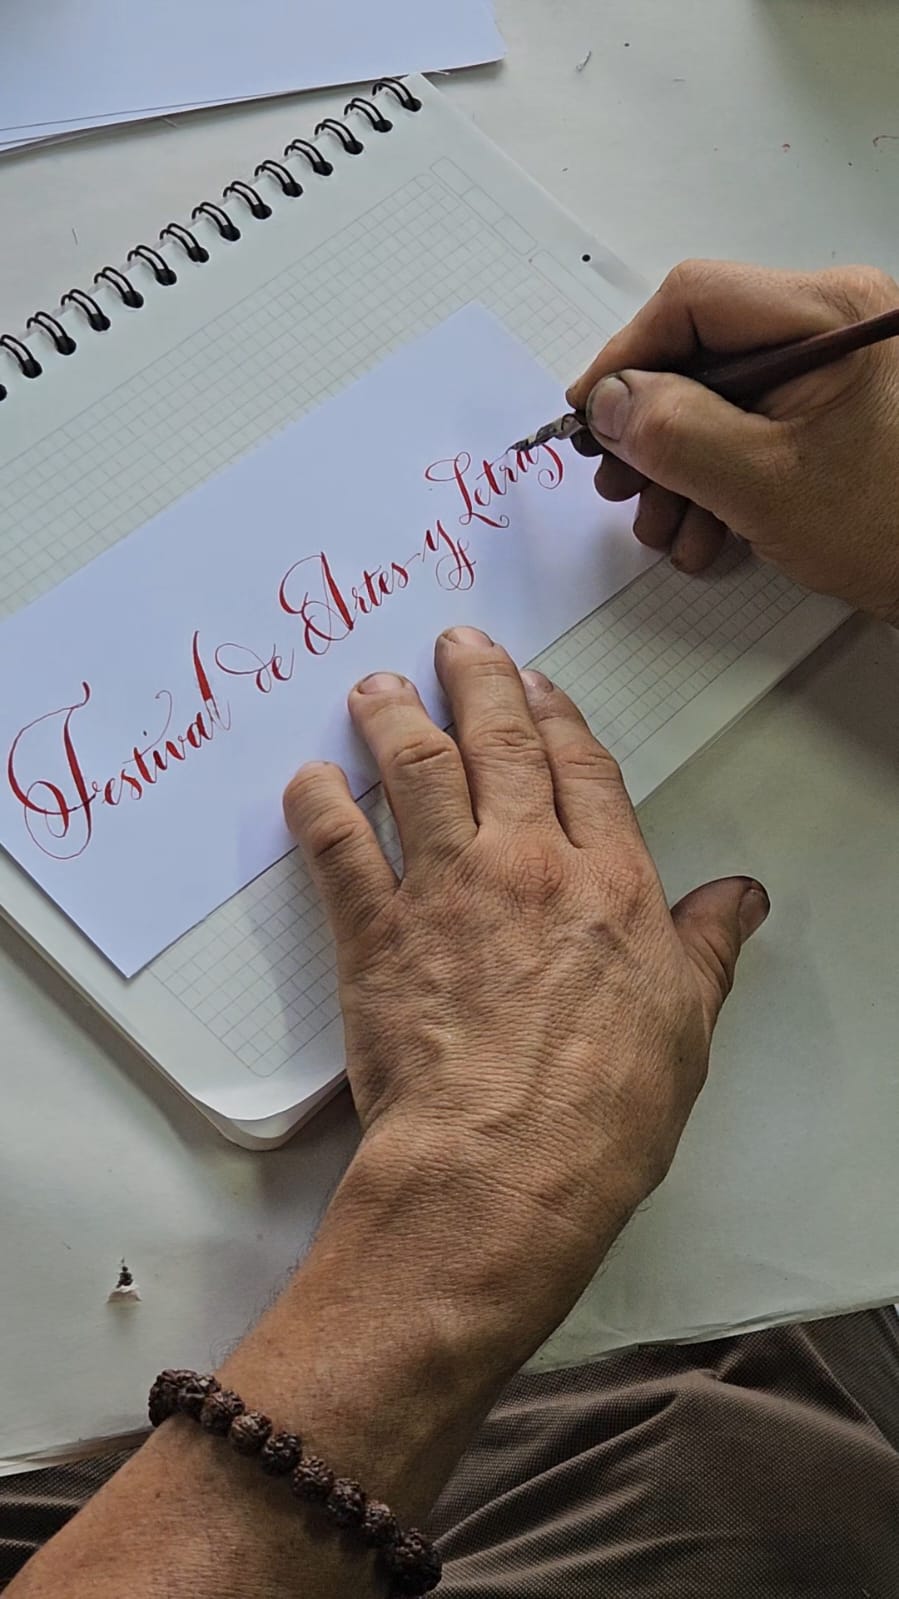 Festival de Artes y Letras